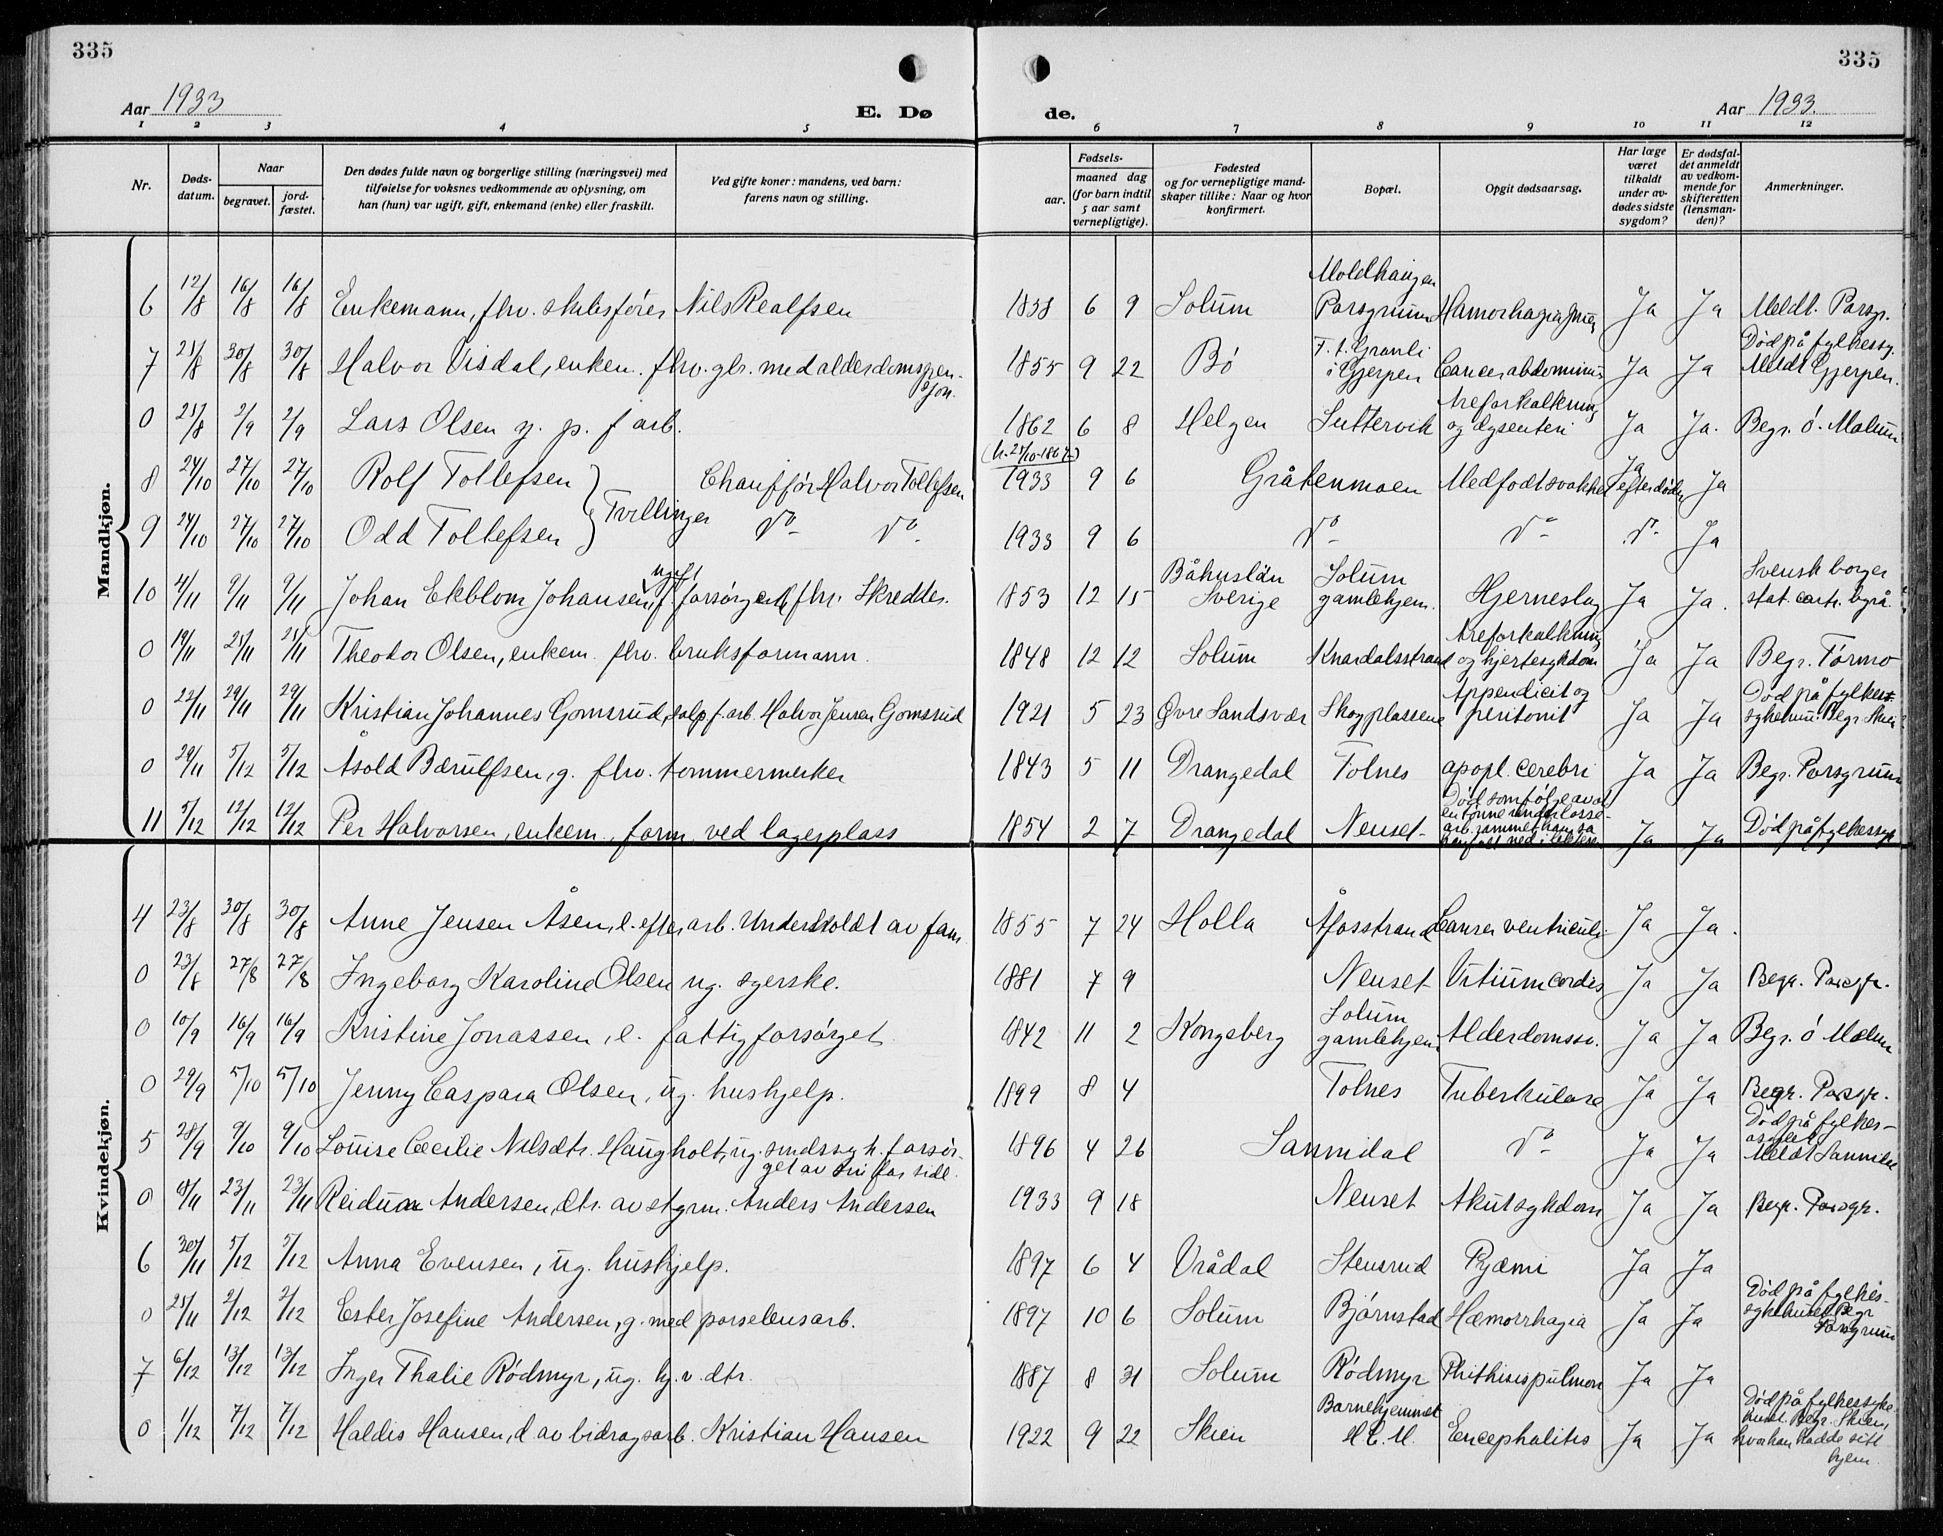 335
335
Aar 1933
E. Dø
de.
Aar 1933.
1 2 3 4 5 6 7 8 9 10 11 12
Nr.
Døds-
datum.
Naar
begravet.
jord-
fæstet.
Den dødes fulde navn og borgerlige stilling (næringsvei) med
tilføielse for voksnes vedkommende av oplysning, om
han (hun) var ugift, gift, enkemand (enke) eller fraskilt.
Ved gifte koner: mandens, ved barn:
farens navn og stilling.
Fødsels-
aar.
maaned dag
(for barn indtil
5 aar samt
vernepligtige).
Fødested
og for vernepligtige mand-
skaper tillike: Naar og hvor
konfirmert.
Bopæl.
Opgit dødsaarsag.
Har læge
været
tilkaldt
under av-
dødes sidste
sygdom?
Er dødsfal-
det anmeldt
av vedkom-
mende for
skifteretten
(lensman-
den)?
Anmerkninger.
Mandkjøn.
6 12/8 16/8 16/8 Enkemann, fhv. skibsfører Nils Realfsen 1838 6 9 Solum Moldhaugen Porsgrunn Ja Ja Meldt. Porsgr.
7 25/8 30/8 30/8 Halvor Visdal, enkem. fhv. gbr. med alderdomspen-
sjon. 1855 9 22 Bø F. t. Granli i Gjerpen Cancer abdominis Ja Ja Død på fylkessy. Meldt Gjerpen.
0 25/8 2/9 2/9 Lars Olsen g. p. f arb. 1862 6 8 Helgen Suttervik Åreforkalkning og dysenteri Ja Ja. Begr. ø. Mælum
8 24/10 27/10 27/10 Rolf Tollefsen Chauffør Halvor Tollefsen 1933 9 6 Gråtenmoen Medfødt svakhet Ja efter døden Ja
Tvillinger
9 24/10 27/10 27/10 Odd Tollefsen do do 1933 9 6 do do do Ja
10 4/11 9/11 9/11 Johan Ekblom Johansen, ugift, f forsørget, fhv. Skredder. 1853 12 15 Båhuslän Sverige Solum gamlehjem. Hjerneslag Ja Ja. Svensk borger stat. centr. byrå.
0 19/11 25/11 25/11 Theodor Olsen, enkem. fhv. bruksformann. 1848 12 12 Solum Knardalsstrand Åreforkalkning og hjertesykdom Ja Ja Begr. Tørmo
0 22/11 29/11 29/11 Kristian Johannes Gomsrud, s. av p. f. arb. Halvor Jensen Gomsrud 1921 5 23 Øvre Sandsvær Skogplassene Appendicit og peritonit Ja Ja Død på fylkes-
sykehuset. Begr Skien
0 29/11 5/12 5/12 Åsold Bærulfsen, g. fhv. tømmermerker 1843 5 11 Drangedal Tolnes apopl. cerebri Ja Ja Begr. Porsgrunn
11 5/12 12/12 12/12 Per Halvorsen, enkem., form ved lagerplass 1854 2 7 Drangedal Nenset Død som følge av at en tønne under losse-
arb. rammet ham så han falt ned i lekteren Ja Ja Død på fylkessyk
Kvindekjøn.
4 23/8 30/8 30/8 Anne Jensen Åsen, e. efter arb. Underholdt av fam. 1855 7 24 Holla Åfosstrand Cancer ventriculi Ja Ja.
0 23/8 27/8 27/8 Ingeborg Karoline Olsen ug. syerske. 1881 7 9 Nenset Vitium cordis Ja Ja Begr. Porsgr.
0 10/9 16/9 16/9 Kristine Jonassen, e. fattigforsørget 1842 11 2 Kongsberg Solum gamlehjem. Alderdomssv. Ja Ja Begr. ø Mælum
0 29/9 5/10 5/10 Jenny Caspara Olsen, ug. hushjelp. 1899 8 4 Tolnes Tuberkulose Ja Ja Begr. Porsgr.
5 28/9 9/10 9/10 Louise Cecilie Nilsdtr. Haugholt, ug. sindssyk. forsør-
get av sin far sitt. 1896 4 26 Sannidal do Ja Ja Død på fylkes-
asylet Meldt Sannidal
0 18/11 23/11 23/11 Reidun Andersen, dtr. av styrm. Anders Andersen 1933 9 18 Nenset Akutsykdom Ja Ja Begr. Porsgr.
6 30/11 5/12 5/12 Anna Evensen, ug. hushjelp. 1897 6 4 Vrådal Stensrud Pyæmi Ja Ja
0 25/11 2/12 2/12 Ester Josefine Andersen, g. med porselensarb. 1897 10 6 Solum Bjørnstad Hæmorrhagia Ja Ja Død på fylkes-
sykehuset Begr Porsgrunn
7 6/12 13/12 13/12 Inger Thalie Rødmyr, ug. hj. v. dtr. 1887 8 31 Solum Rødmyr Phthisis pulmon Ja Ja
0 1/12 7/12 7/12 Haldis Hansen, d av bidragsarb. Kristian Hansen 1922 9 22 Skien Barnehjemmet Encephalitis Ja Ja Død på fylkessyke-
huset. Begr. Skien, hvor han hadde sitt hjem.